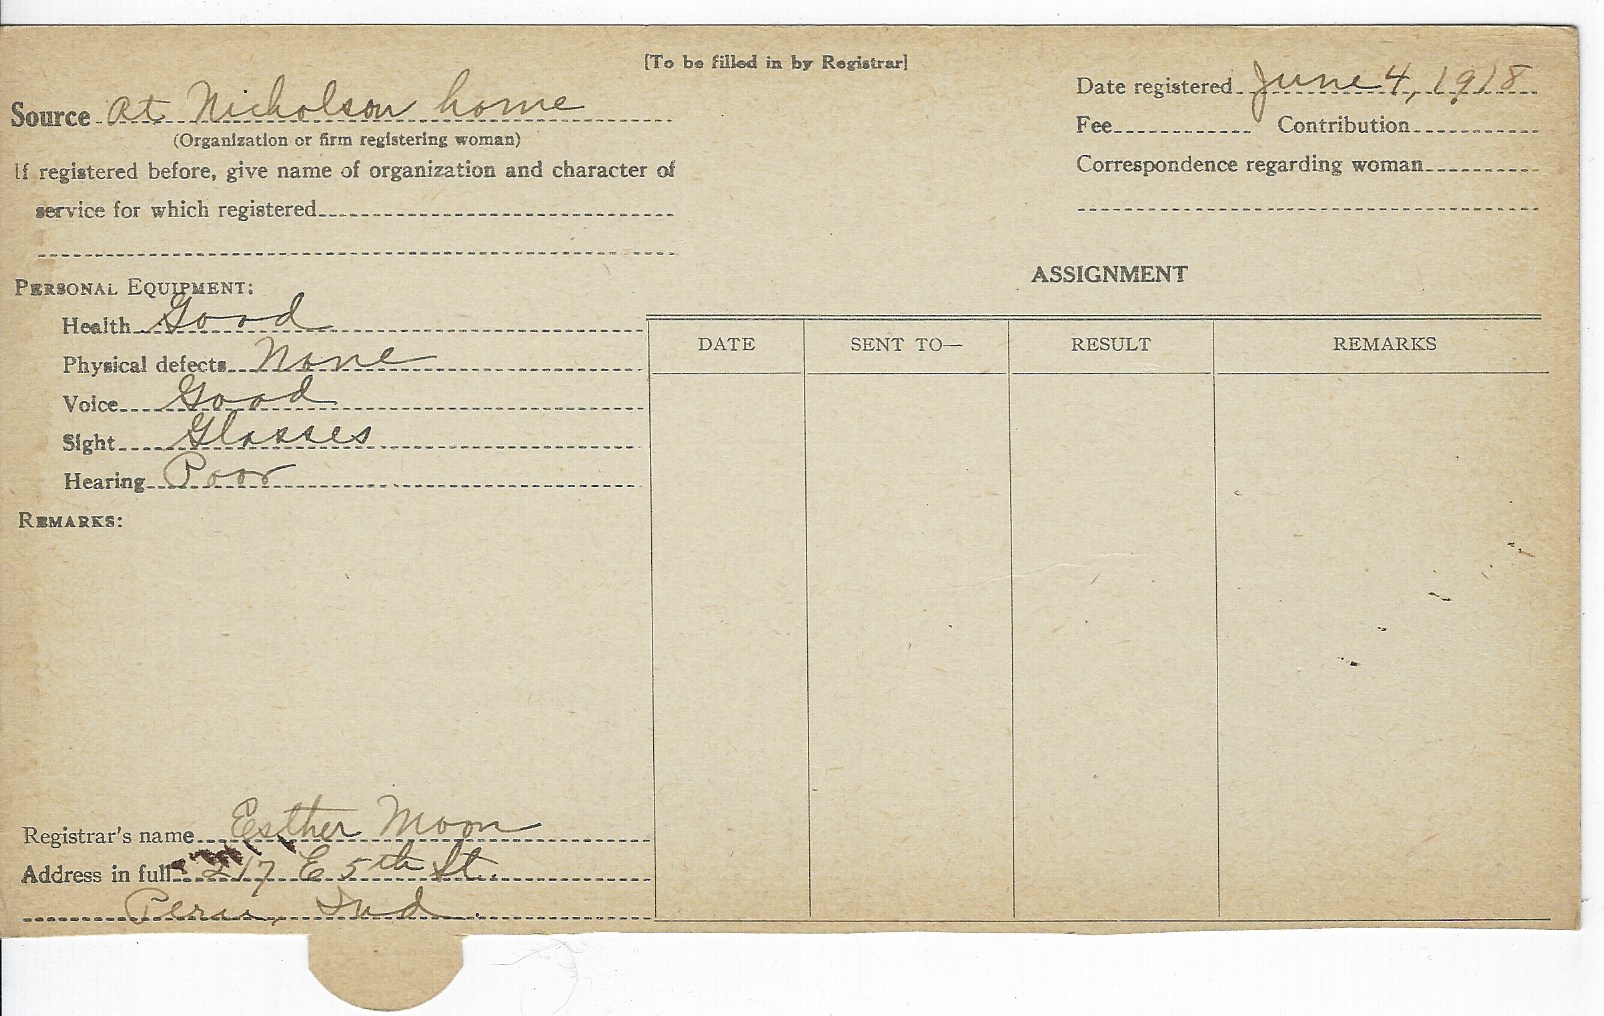 [To be filled in by Registrar]
Source At Nicholson home
(Organization or firm registering woman)
If registered before, give name of organization and character of
service for which registered
Date registered June 4, 1918
Fee Contribution
Correspondence regarding woman
PERSONAL EQUIPMENT:
Health Good
Physical defects None
Voice Good
Sight Glasses
Hearing Poor
REMARKS:
ASSIGNMENT
DATE SENT TO— RESULT REMARKS
Registrar's name Esther Moon
Address in full 217 E 5th St.
Peru, Ind.